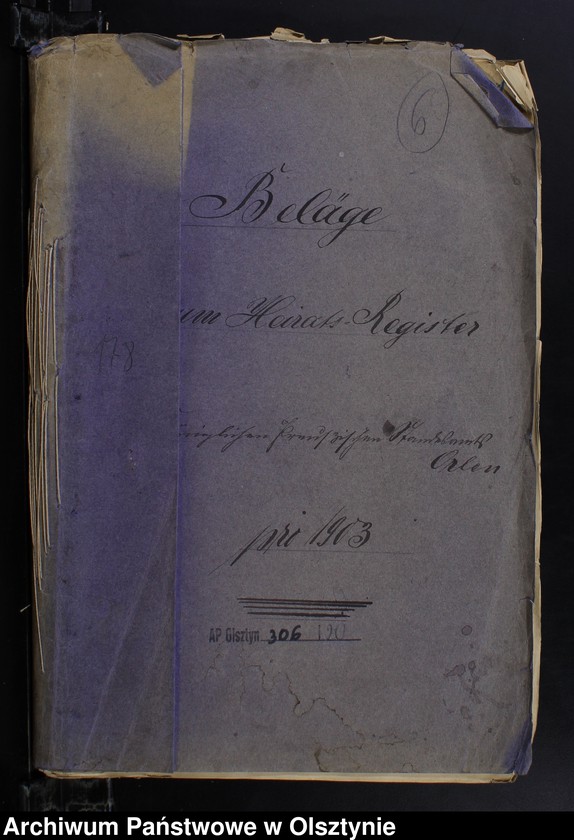 6
Beläge
um Heirats-Register
178
Preußischen Standesamts
Orlen
pri 1903
AP Olsztyn 306 120
Archiwum Państwowe w Olsztynie